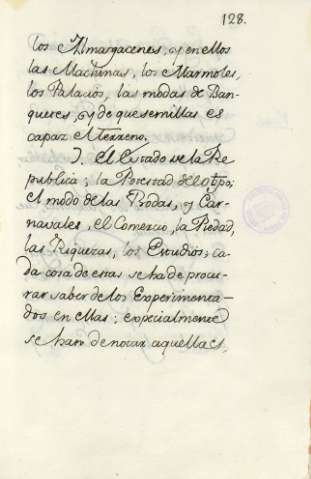 128.
los Almargacenes, y en ellos
las Machinas, los Marmoles,
los Palacios, las modas de Ban-
quetes, y de que semillas es
capaz el terreno.
7. El Estado de la Re
publica; la Potestad del otpo;
el modo de las Bodas, y Car-
navales, el Comercio, la Piedad,
las Riquezas, los Estudios; ca-
da cosa de estas se ha de procu-
rar saber de los Experimenta-
dos en ellas; especialmente
se han de notar aquellas,